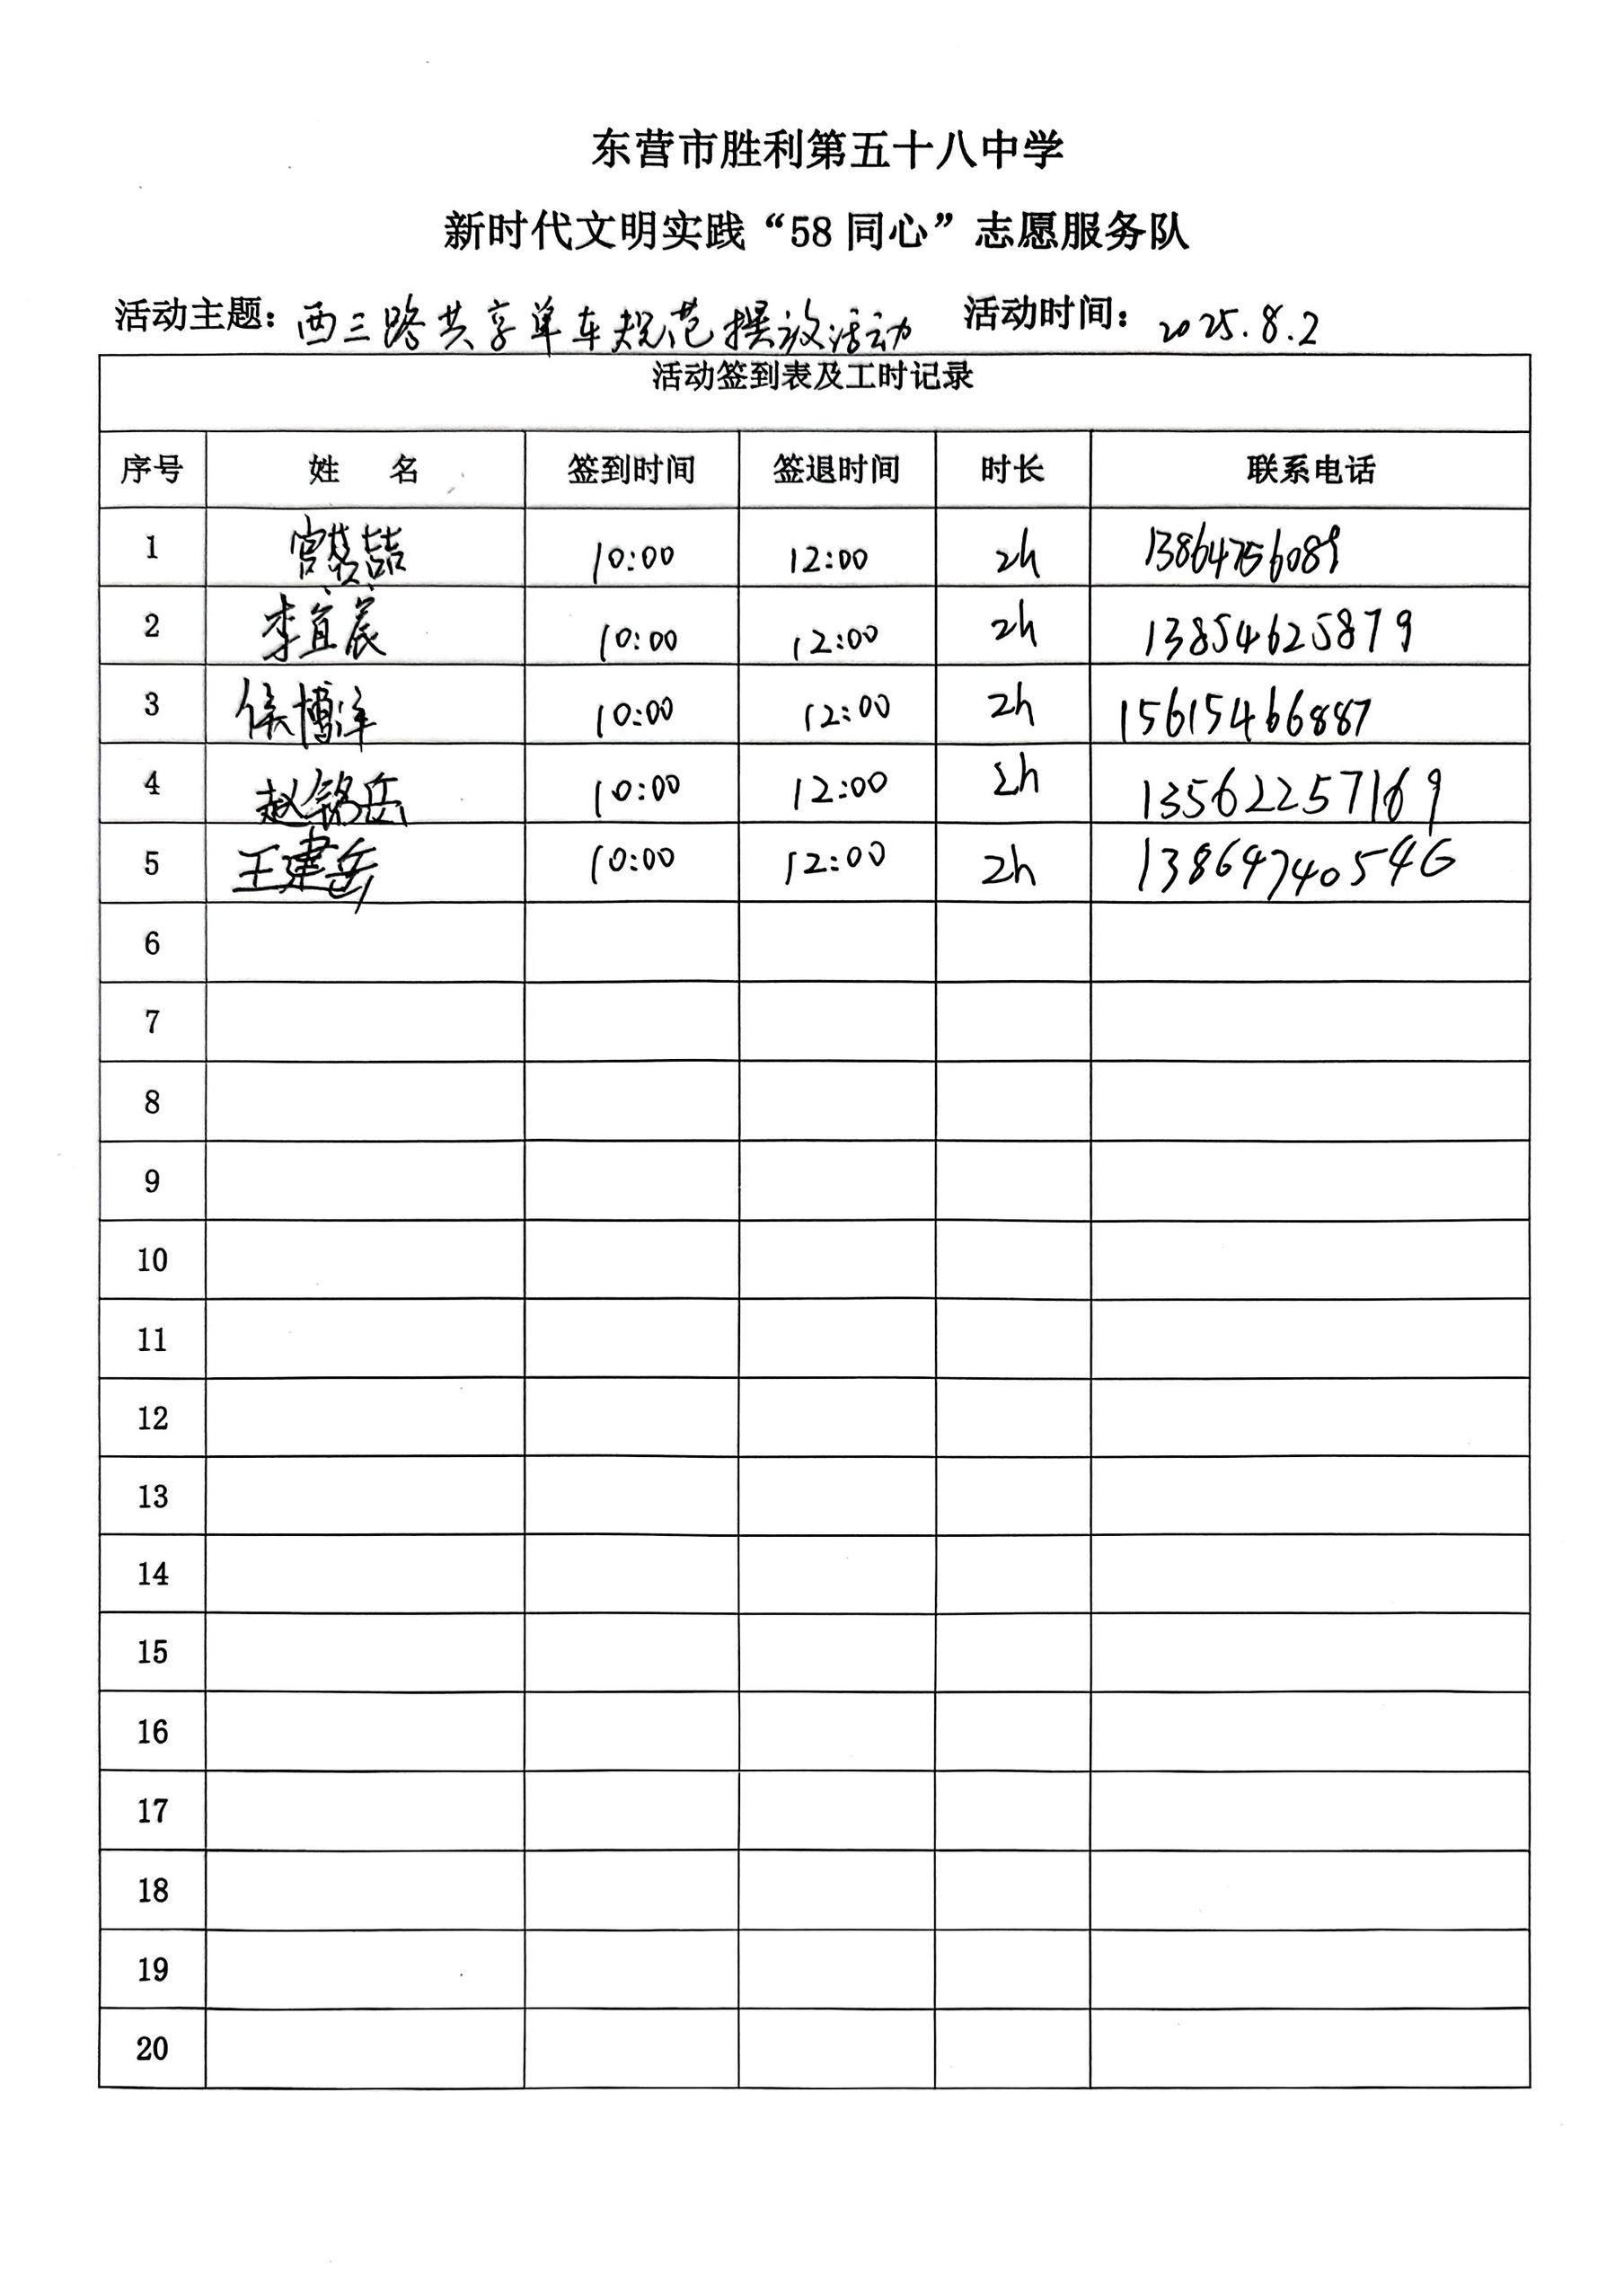 东营市胜利第五十八中学
新时代文明实践“58同心”志愿服务队
活动主题：西三路共享单车规范摆放活动 活动时间：2025.8.2
活动签到表及工时记录
序号 姓 名 签到时间 签退时间 时长 联系电话
1 宫赟喆 10:00 12:00 2h 13864756089
2 李宜宸 10:00 12:00 2h 13854625879
3 侯博洋 10:00 12:00 2h 15615466887
4 赵铭岳 10:00 12:00 2h 13562257169
5 王建岳 10:00 12:00 2h 13864740546
6
7
8
9
10
11
12
13
14
15
16
17
18
19
20